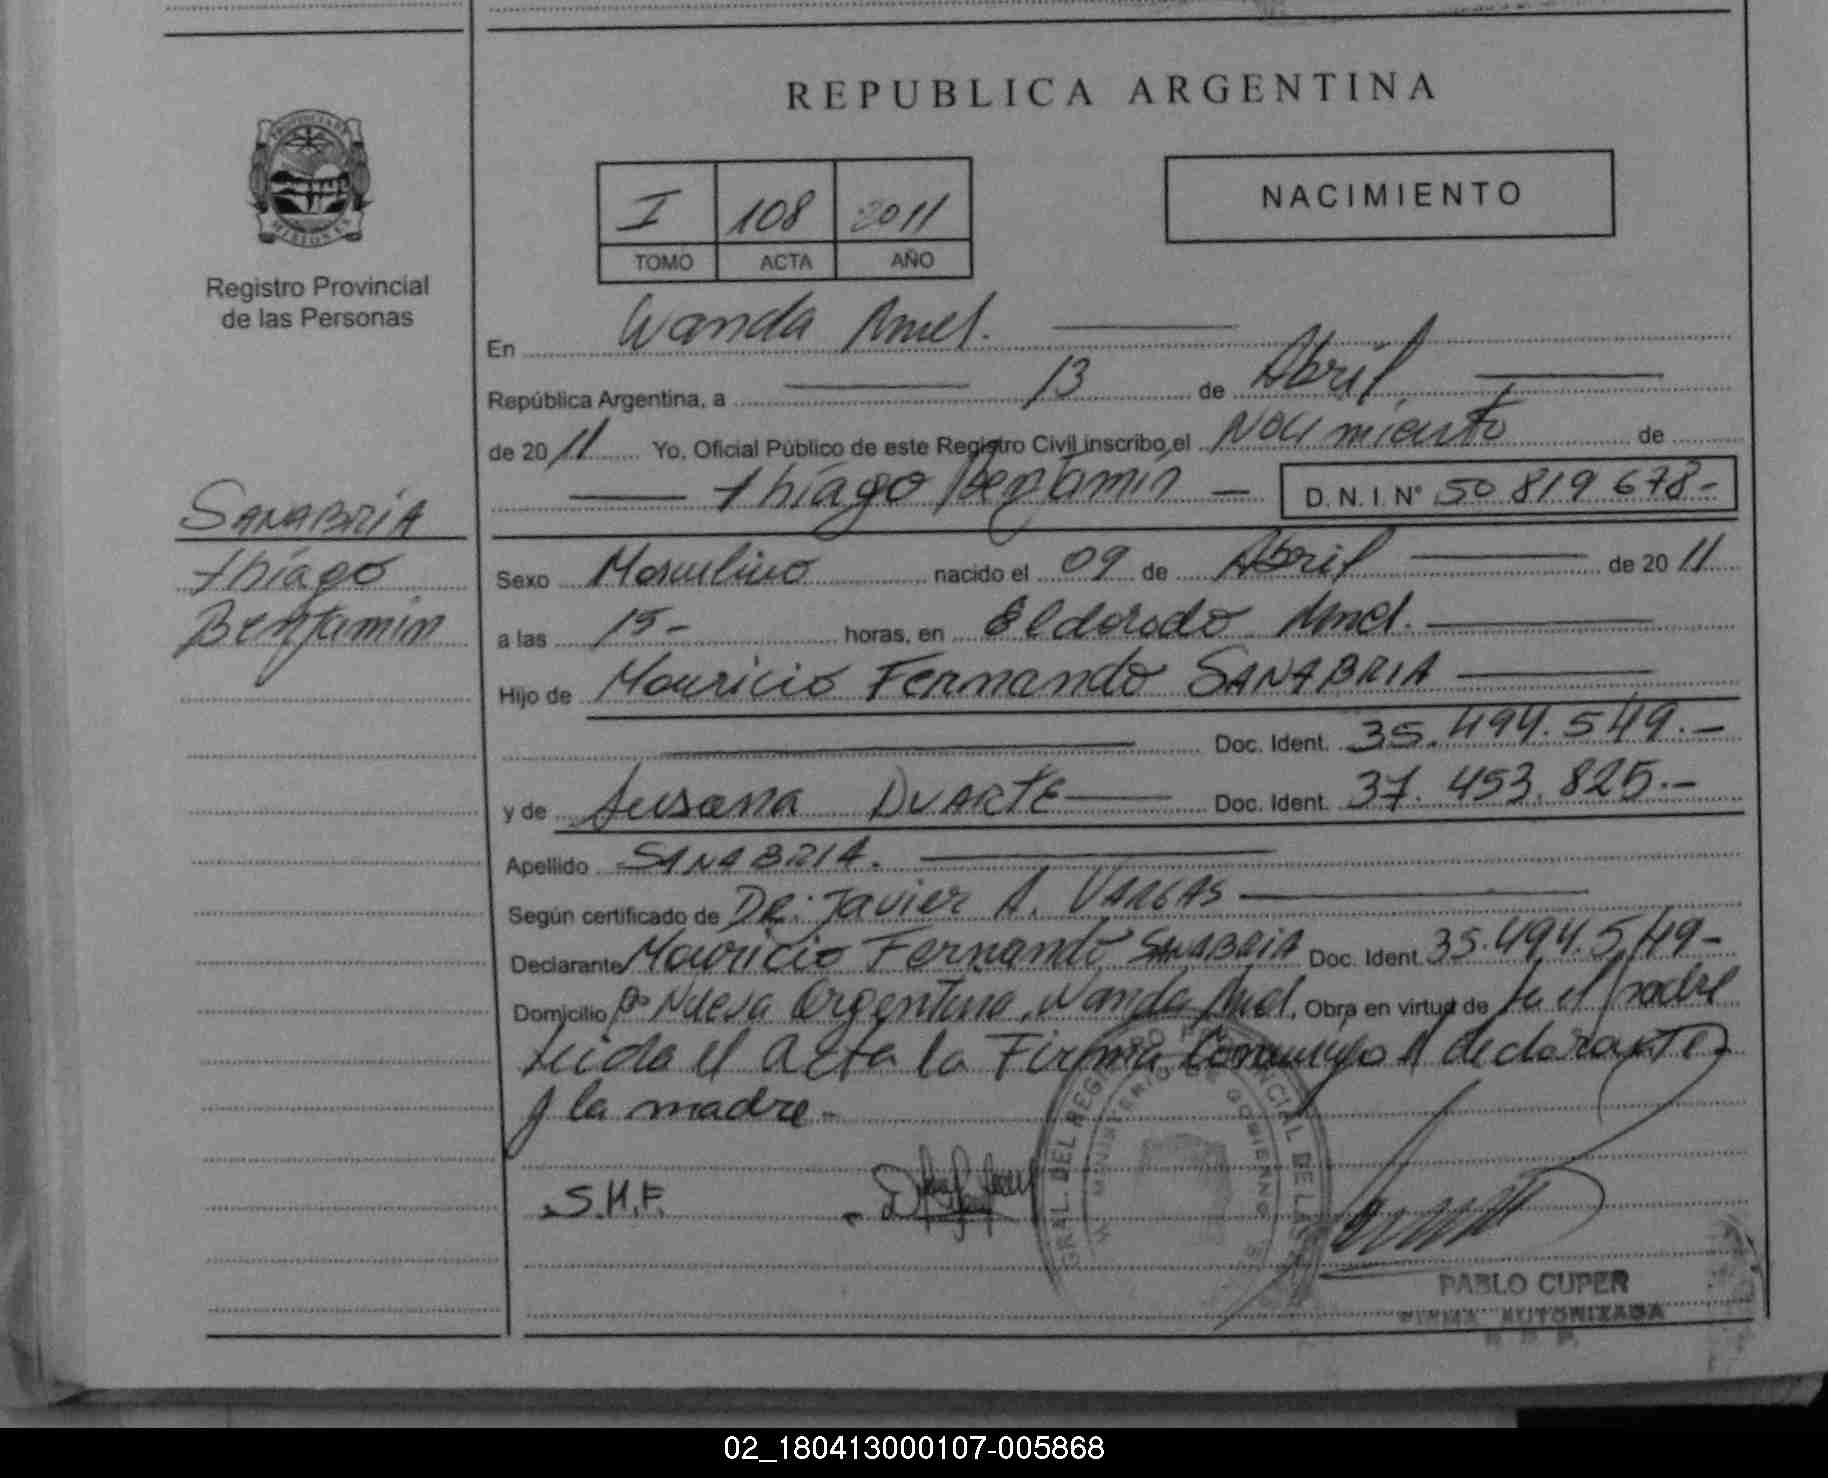 REPUBLICA ARGENTINA
I 108 2011
TOMO ACTA AÑO
NACIMIENTO
PROVINCIA DE
MISIONES
Registro Provincial
de las Personas
SANABRIA
thiago
Benjamin
En Wanda Mnes.
República Argentina, a 13 de Abril
de 2011 Yo, Oficial Público de este Registro Civil inscribo el Nacimiento de
thiago Benjamin D.N.I. N° 50 819 678-
Sexo Masculino nacido el 09 de Abril de 2011
a las 15- horas, en Eldorado Mnes.
Hijo de Mauricio Fernando SANABRIA
Doc. Ident. 35.494.549.-
y de Susana DUARTE Doc. Ident. 37.453.825.-
Apellido SANABRIA.
Según certificado de DR: Javier A. VARGAS
Declarante Mauricio Fernando SANABRIA Doc. Ident. 35.494.549-
Domicilio Bº Nueva Argentina, Wanda Mnes. Obra en virtud de el padre
leida el acta la Firma Conmigo el declarante
y la madre-
S.M.F.
GRAL. DEL REGISTRO PROVINCIAL DE LAS
MINISTERIO DE GOBIERNO
PABLO CUPER
FIRMA AUTORIZADA
R. P. P.
02_180413000107-005868